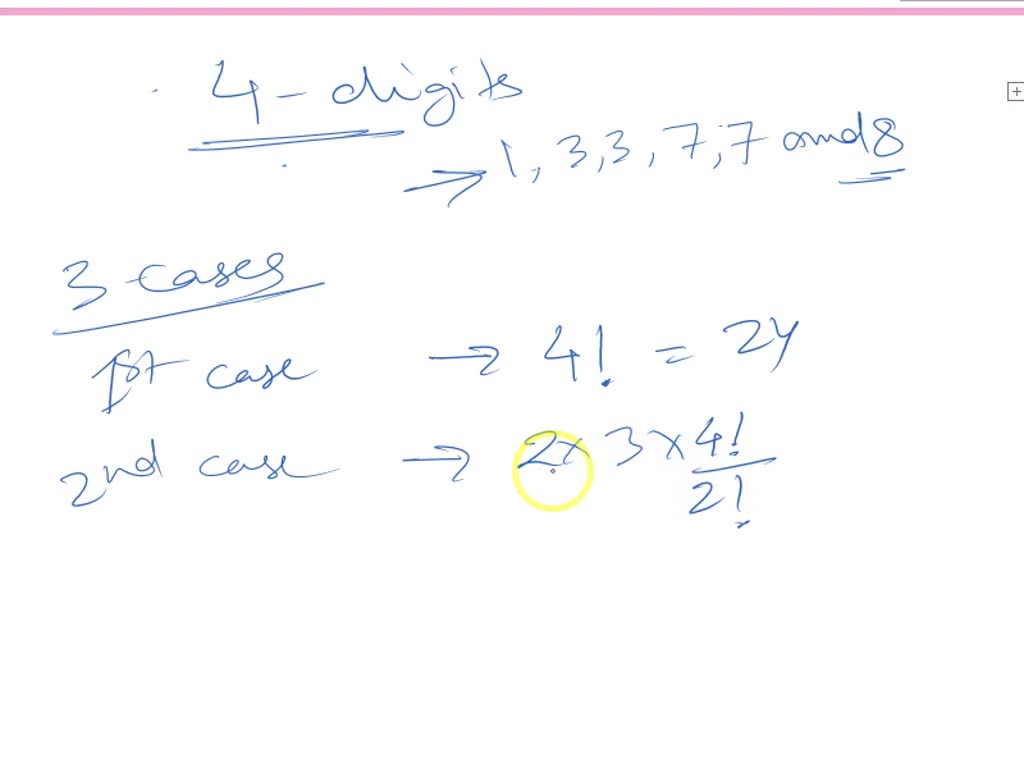 4 - digits
→ 1, 3, 3, 7, 7 and 8
3 cases
1st case → 4! = 24
2nd case → 2 × 3 × 4!
2!